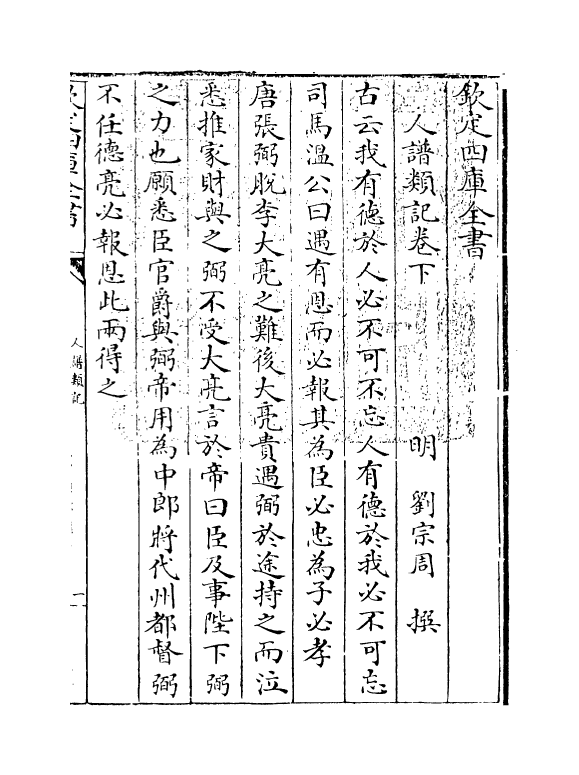 欽定四庫全書
人譜類記卷下
明 劉宗周 撰
古云我有德於人必不可不忘人有德於我必不可忘
司馬溫公曰遇有恩而必報其為臣必忠為子必孝
唐張弼脫李大亮之難後大亮貴遇弼於途持之而泣
悉推家財與之弼不受大亮言於帝曰臣及事陛下弼
之力也願悉臣官爵與弼帝用為中郎將代州都督弼
不任德亮必報恩此兩得之
欽定四庫全書
人譜類記